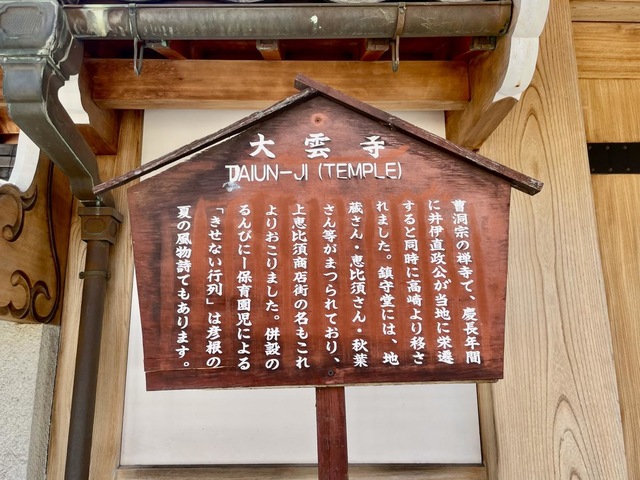 大雲寺
DAIUN-JI (TEMPLE)
曹洞宗の禅寺で、慶長年間
に井伊直政公が当地に栄遷
すると同時に高崎より移さ
れました。鎮守堂には、地
蔵さん・恵比須さん・秋葉
さん等がまつられており、
上恵比須商店街の名もこれ
よりおこりました。併設の
るんびにー保育園児による
「きせない行列」は彦根の
夏の風物詩でもあります。